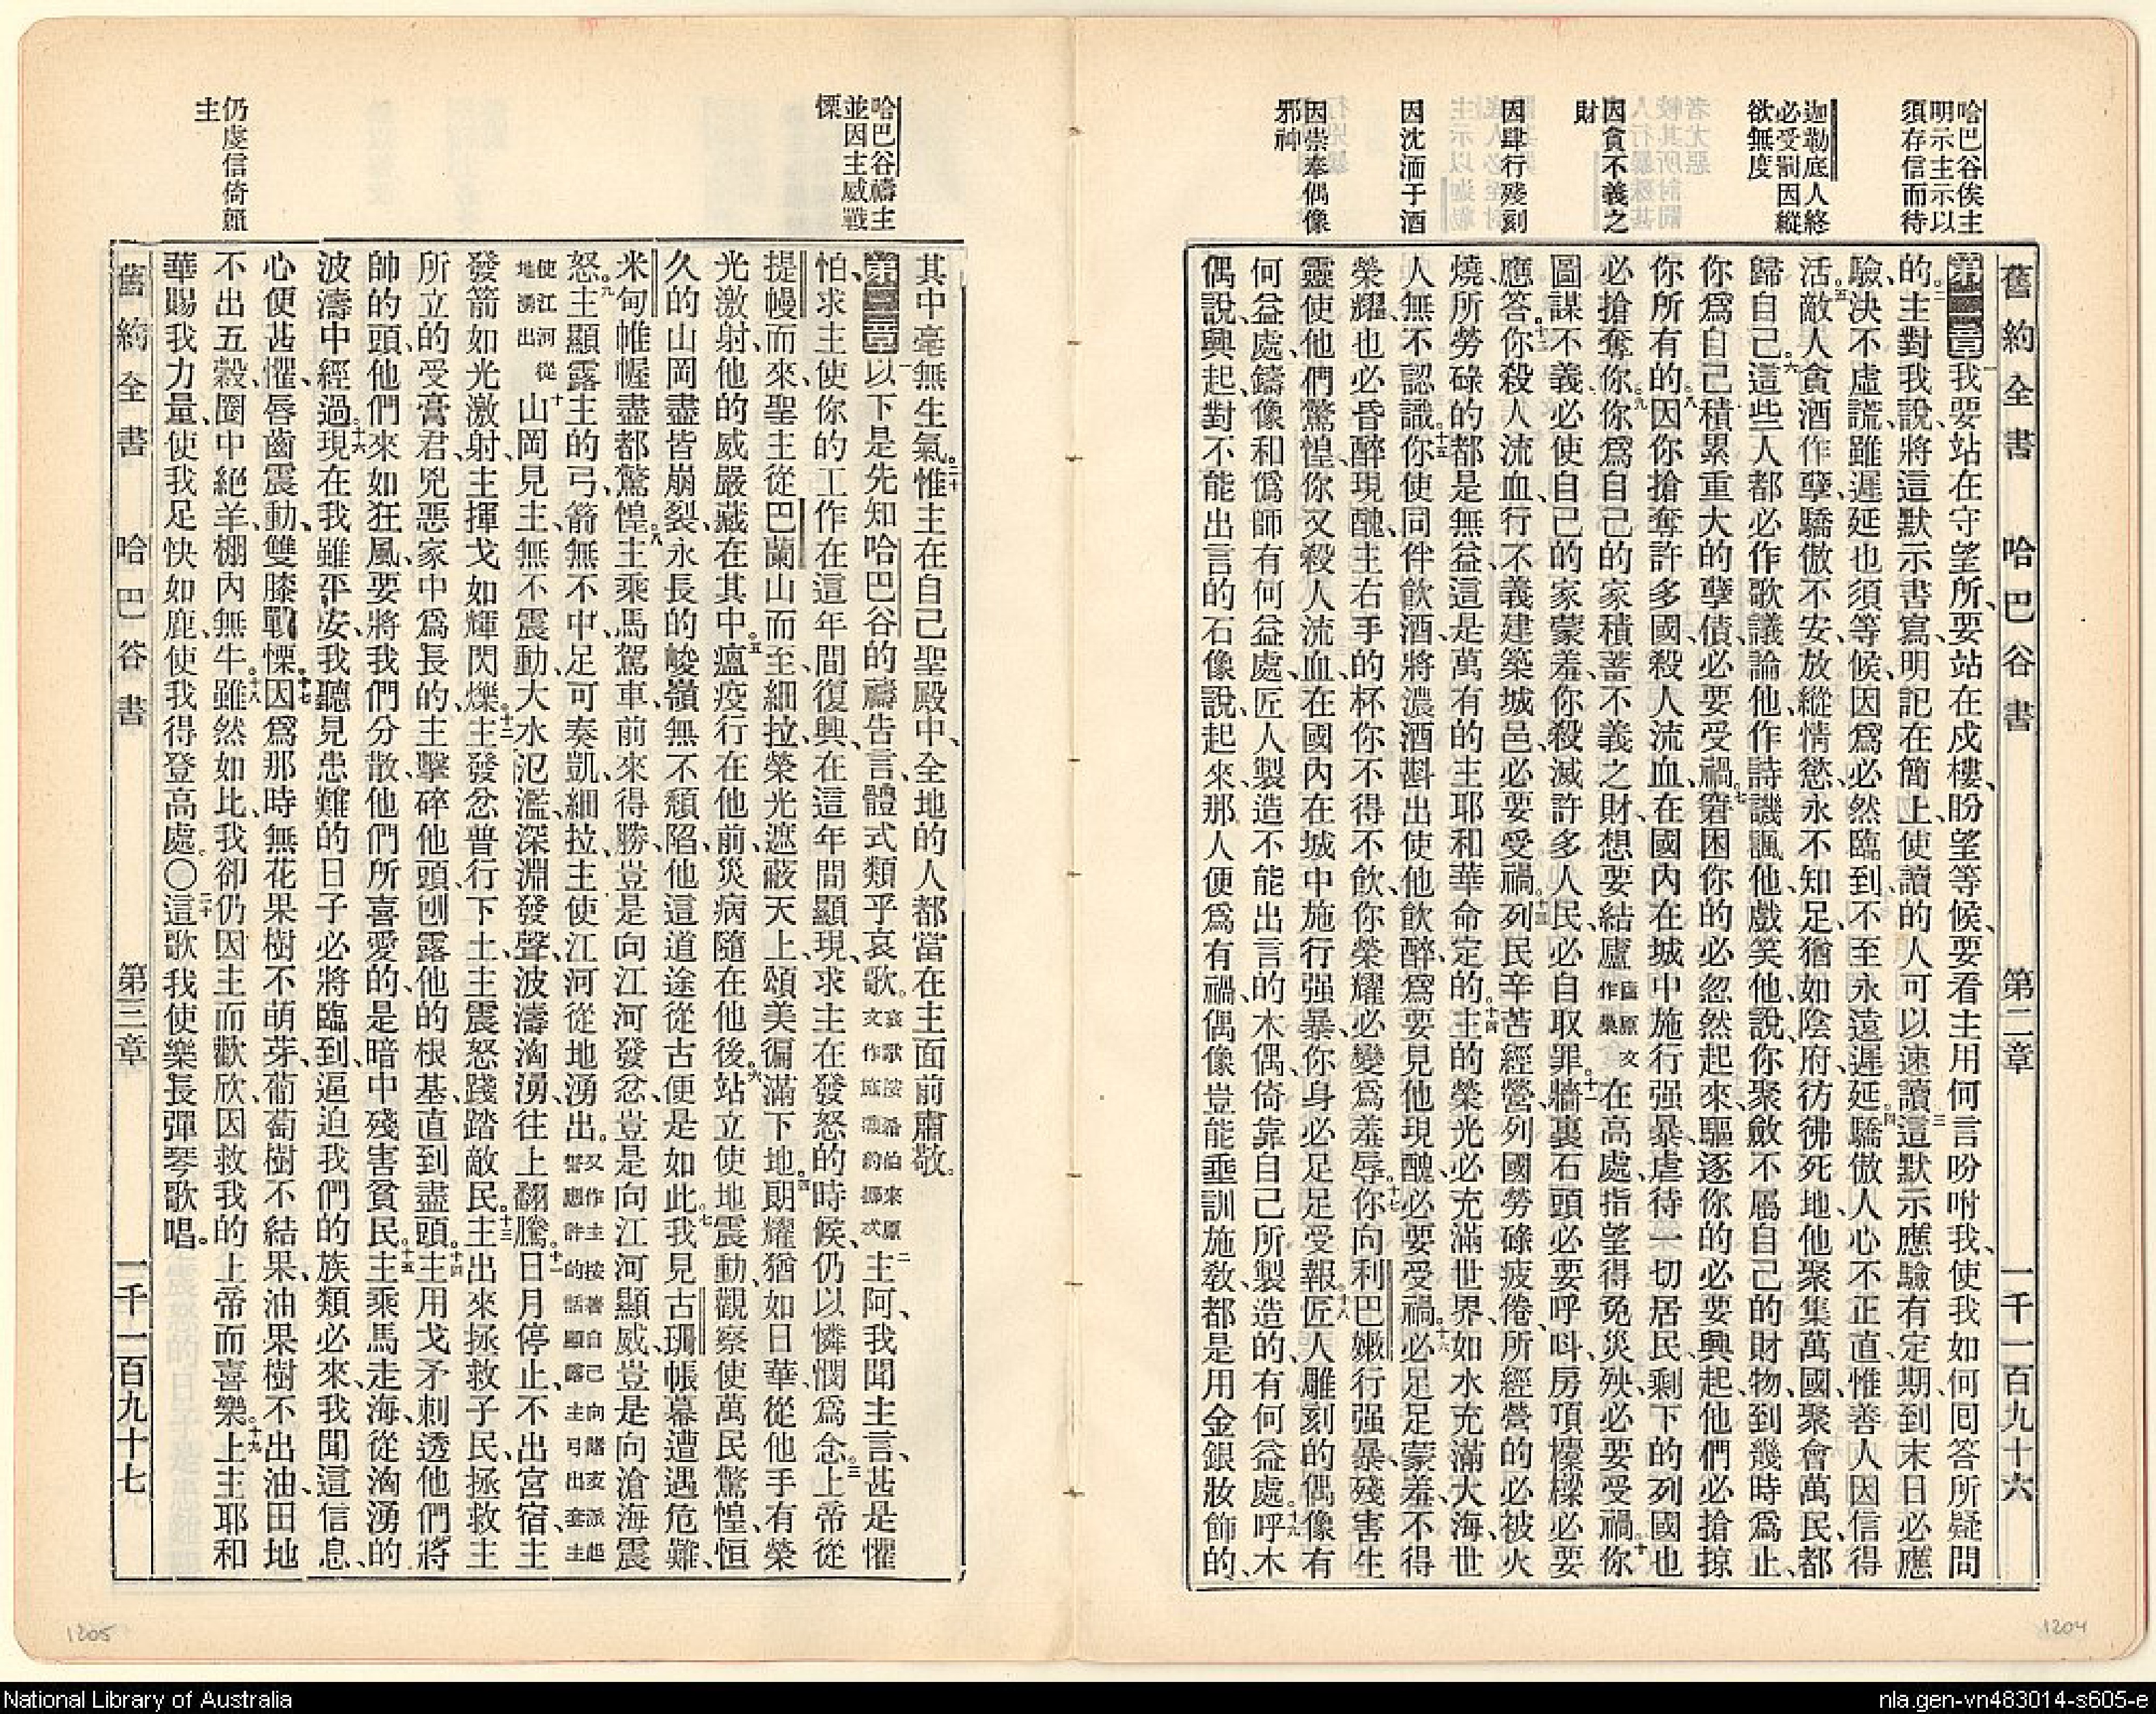 哈巴谷俟主
明示主示以
須存信而待
迦勒底人終
必受罰因縱
欲無度
因貪不義之
財
因肆行殘刻
因沈湎于酒
因崇奉偶像
邪神
舊約全書 哈巴谷書 第二章 一千一百九十六
第二章一我要站在守望所、要站在戍樓、盼望等候、要看主用何言吩咐我、使我如何回答所疑問
的。二主對我說、將這默示書寫、明記在簡上、使讀的人可以速讀、三這默示應驗有定期、到末日必應
驗、決不虛謊、雖遲延也須等候、因爲必然臨到、不至永遠遲延。四驕傲人心不正直、惟善人因信得
活。五敵人貪酒作孽、驕傲不安、放縱情慾、永不知足、猶如陰府、彷彿死地、他聚集萬國、聚會萬民、都
歸自己。六這些人都必作歌議論他、作詩譏諷他、戲笑他、說、你聚斂不屬自己的財物、到幾時爲止、
你爲自己積累重大的孽債、必要受禍。七窘困你的必忽然起來、驅逐你的必要興起、他們必搶掠
你所有的。八因你搶奪許多國、殺人流血、在國內在城中施行强暴、虐待一切居民、剩下的列國也
必搶奪你。九你爲自己的家積蓄不義之財、想要結廬廬原文作巢在高處、指望得免災殃、必要受禍。十你
圖謀不義、必使自己的家蒙羞、你殺滅許多人民、必自取罪。十一牆裏石頭必要呼叫、房頂檁樑必要
應答。十二你殺人流血、行不義建築城邑、必要受禍。十三列民辛苦經營、列國勞碌疲倦、所經營的必被火
燒、所勞碌的都是無益、這是萬有的主耶和華命定的。十四主的榮光必充滿世界、如水充滿大海、世
人無不認識。十五你使同伴飲酒、將濃酒斟出使他飲醉、爲要見他現醜、必要受禍。十六必足足蒙羞、不得
榮耀、也必昏醉現醜、主右手的杯、你不得不飲、你榮耀必變爲羞辱。十七你向利巴嫩行强暴、殘害生
靈、使他們驚惶、你又殺人流血、在國內在城中施行强暴、你身必足足受報。十八匠人雕刻的偶像有
何益處、鑄像和僞師有何益處、匠人製造不能出言的木偶、倚靠自己所製造的、有何益處。十九呼木
偶說、興起、對不能出言的石像說、起來、那人便爲有禍、偶像豈能垂訓施敎、都是用金銀妝飾的、
哈巴谷禱主
並因主威戰
慄
仍虔信倚賴
主
其中毫無生氣。二十惟主在自己聖殿中、全地的人都當在主面前肅敬。
第三章一以下是先知哈巴谷的禱告言、體式類乎哀歌。哀歌按希伯來原文作施激約挪忒二主阿、我聞主言、甚是懼
怕、求主使你的工作在這年間復興、在這年間顯現、求主在發怒的時候、仍以憐憫爲念。三上帝從
提幔而來、聖主從巴蘭山而至、細拉、榮光遮蔽天上、頌美徧滿下地。四朗耀猶如日華、從他手有榮
光激射、他的威嚴藏在其中。五瘟疫行在他前、災病隨在他後。六站立使地震動、觀察使萬民驚惶、恒
久的山岡盡皆崩裂、永長的峻嶺無不頹陷、他這道途從古便是如此。七我見古珊帳幕遭遇危難、
米甸帷幄盡都驚惶。八主乘馬駕車、前來得勝、豈是向江河發忿、豈是向江河顯威、豈是向滄海震
怒。九主顯露主的弓、箭無不中、足可奏凱、細拉、主使江河從地湧出。又作主按著自己向諸支派起誓應許的話顯露主弓出套主
使江河從地湧出十山岡見主、無不震動、大水氾濫、深淵發聲、波濤洶湧、往上翻騰。十一日月停止、不出宮宿、主
發箭如光激射、主揮戈如輝閃爍。十二主發忿普行下土、主震怒踐踏敵民。十三主出來拯救子民、拯救主
所立的受膏君、兇惡家中爲長的、主擊碎他頭、刨露他的根基、直到盡頭。十四主用戈矛刺透他們將
帥的頭、他們來如狂風、要將我們分散、他們所喜愛的、是暗中殘害貧民。十五主乘馬走海、從洶湧的
波濤中經過。十六現在我雖平安、我聽見患難的日子必將臨到、逼迫我們的族類必來、我聞這信息、
心便甚懼、唇齒震動、雙膝戰慄。十七因爲那時無花果樹不萌芽、葡萄樹不結果、油果樹不出油、田地
不出五穀、圈中絕羊、棚內無牛。十八雖然如此、我卻仍因主而歡欣、因救我的上帝而喜樂。十九上主耶和
華賜我力量、使我足快如鹿、使我得登高處。〇二十這歌我使樂長彈琴歌唱。
舊約全書 哈巴谷書 第三章 一千一百九十七
1205
1204
National Library of Australia
nla.gen-vn483014-s605-e